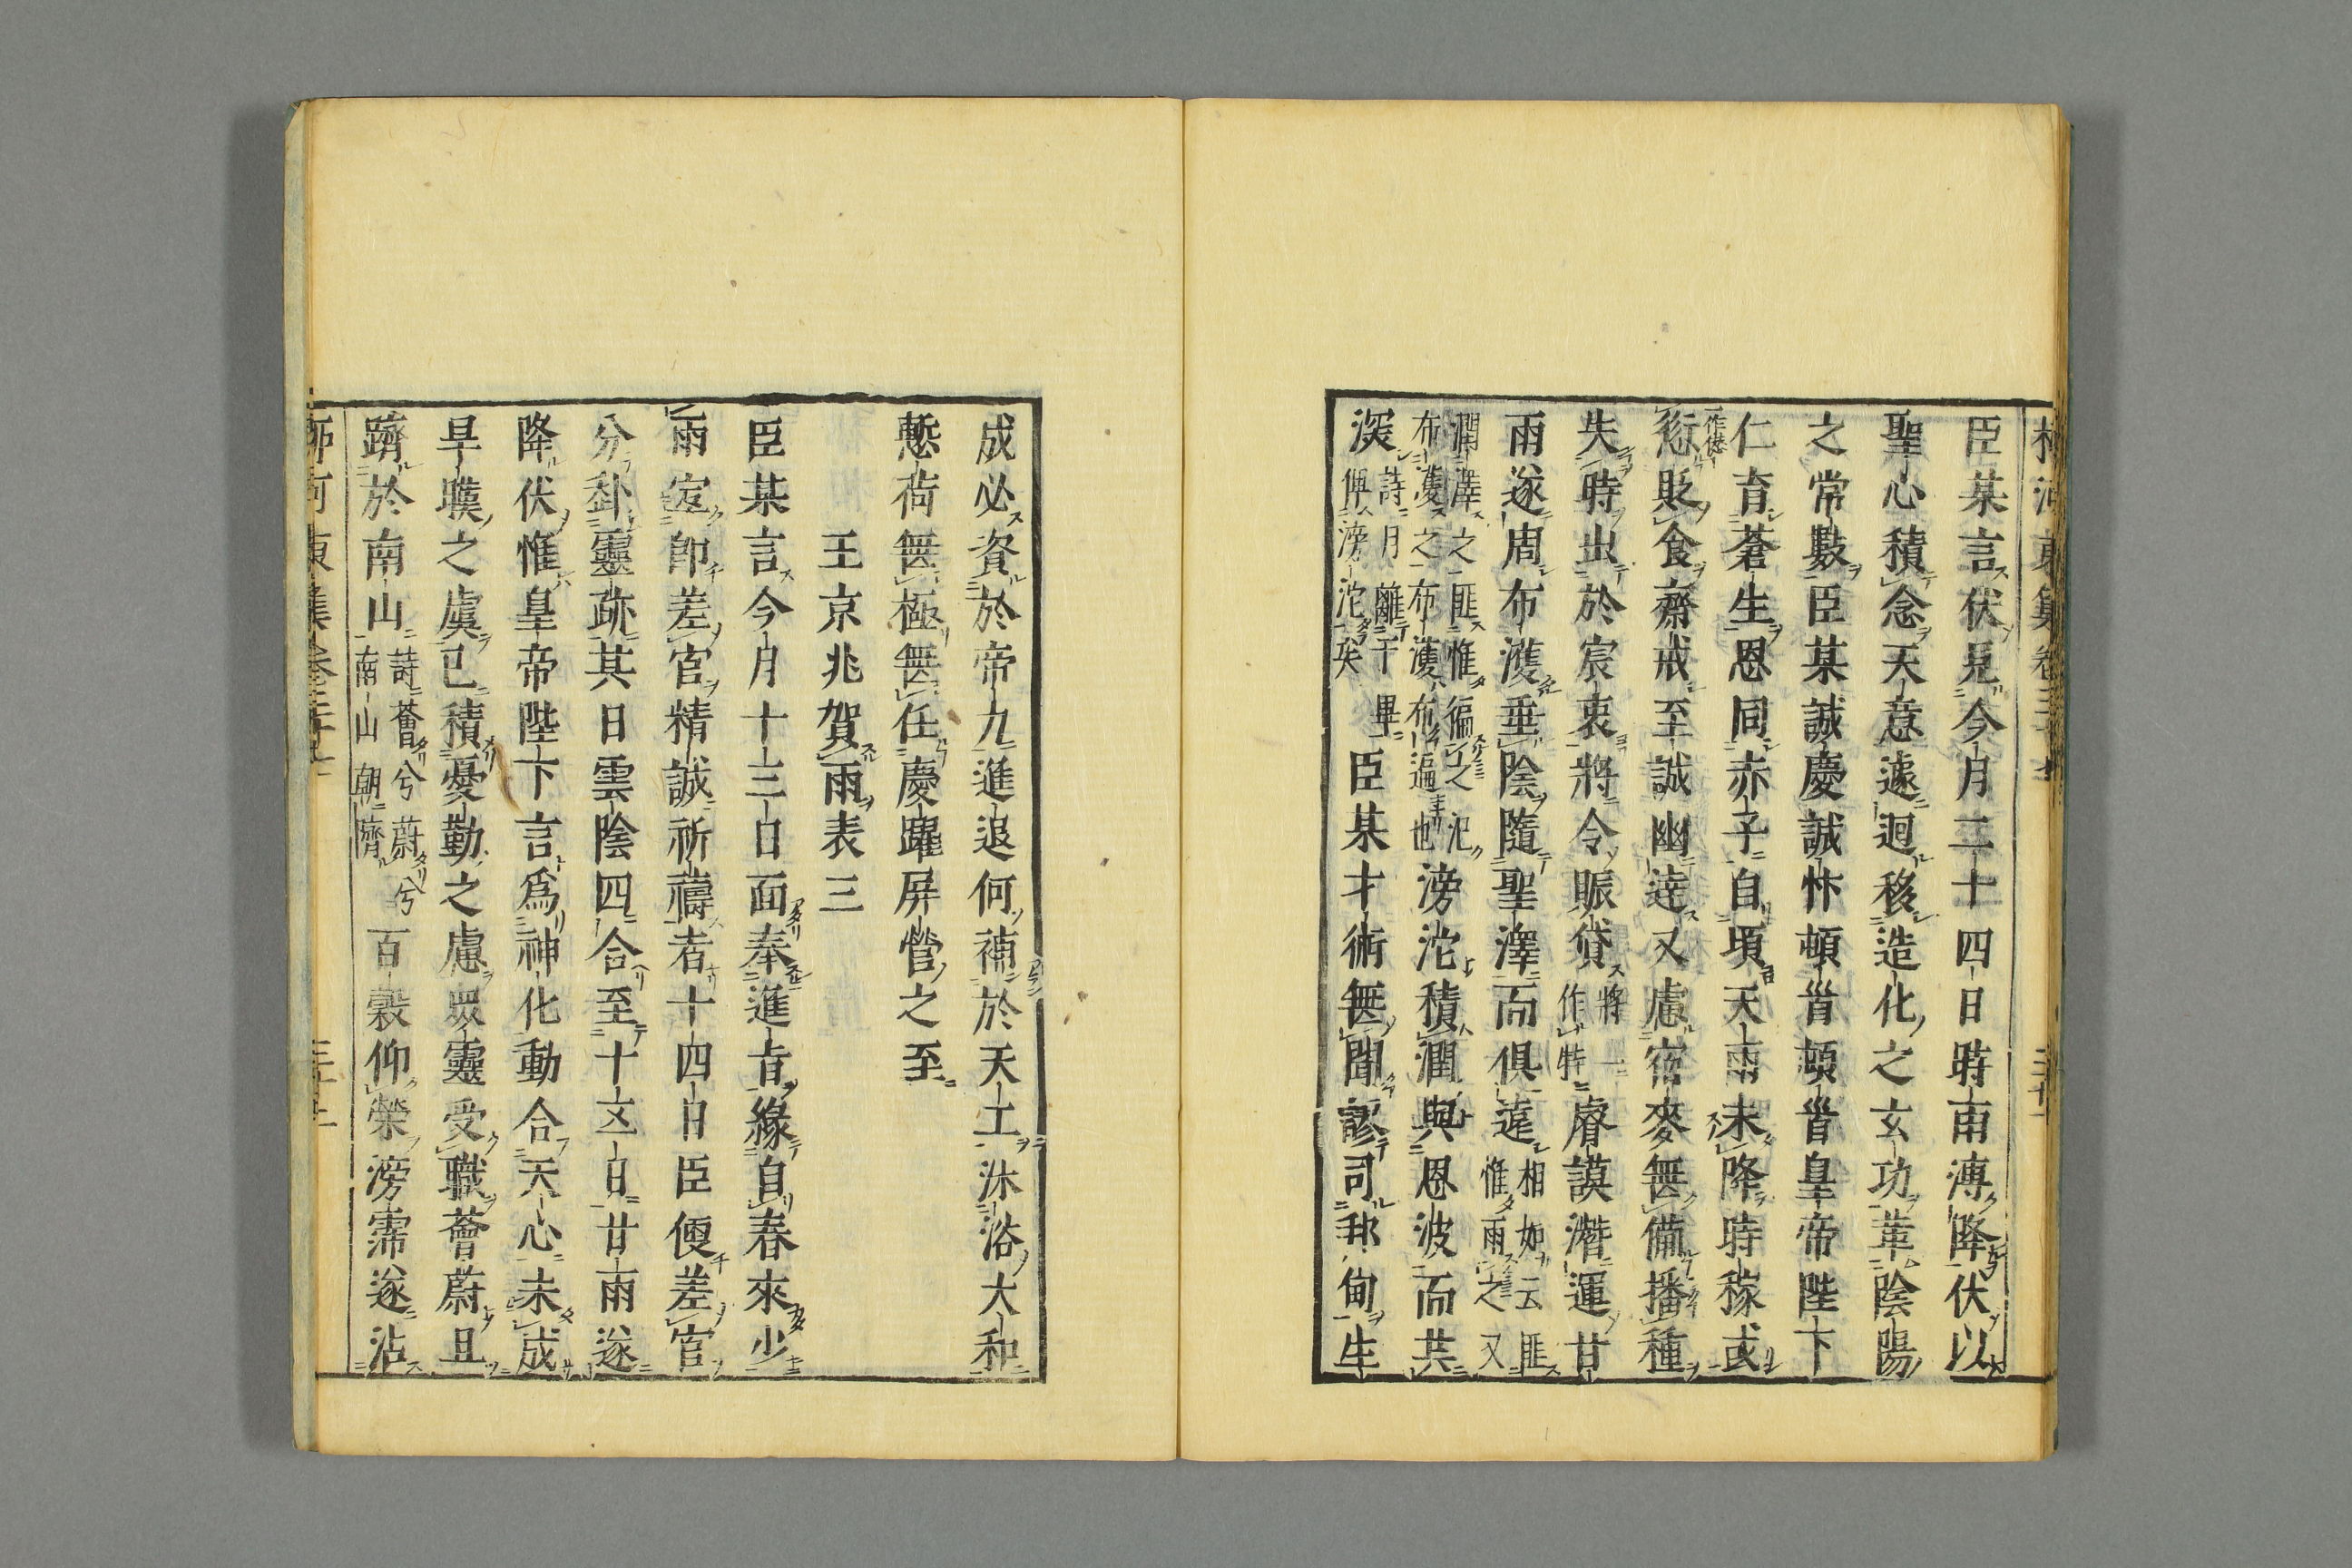 柳河東集卷三十七
三十一
臣某言伏見今月二十四日時雨溥降伏以
聖心積念天意遽迴移造化之玄功革陰陽
之常數臣某誠慶誠忭頓首頓首皇帝陛下
仁育蒼生恩同赤子自頃天雨未降時稼或
愆貶食齋戒至誠幽達又慮宿麥無備播種
一作愆
失時出於宸衷將令賑貸將一作特睿謨潛運甘
雨遂周布濩垂陰隨聖澤而俱遠相如云匪惟雨之又
潤澤之匪惟徧之氾布濩之布濩布遍也滂沱積潤與恩波而共
深詩月離于畢俾滂沱矣臣某才術無聞謬司邦甸生
成必資於帝力進退何補於天工沐浴大和
慙荷無極無任慶躍屏營之至
王京兆賀雨表三
臣某言今月十三日面奉進旨緣自春來少
雨宜卽差官精誠祈禱者十四日臣便差官
分卦靈跡其日雲陰四合至十五日甘雨遂
降伏惟皇帝陛下言爲神化動合天心未成
旱暵之虞已積憂勤之慮眾靈受職薈蔚且
躋於南山詩薈兮蔚兮南山朝隮百穀仰榮滂霈遂沾
柳河東集卷三十七